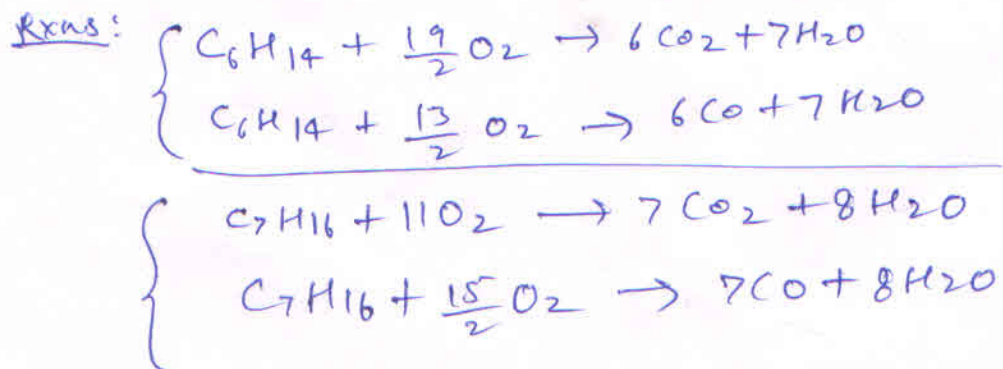 Rxns: C₆H₁₄ + 19/2 O₂ → 6CO₂ + 7H₂O
C₆H₁₄ + 13/2 O₂ → 6CO + 7H₂O
C₇H₁₆ + 11O₂ → 7CO₂ + 8H₂O
C₇H₁₆ + 15/2 O₂ → 7CO + 8H₂O